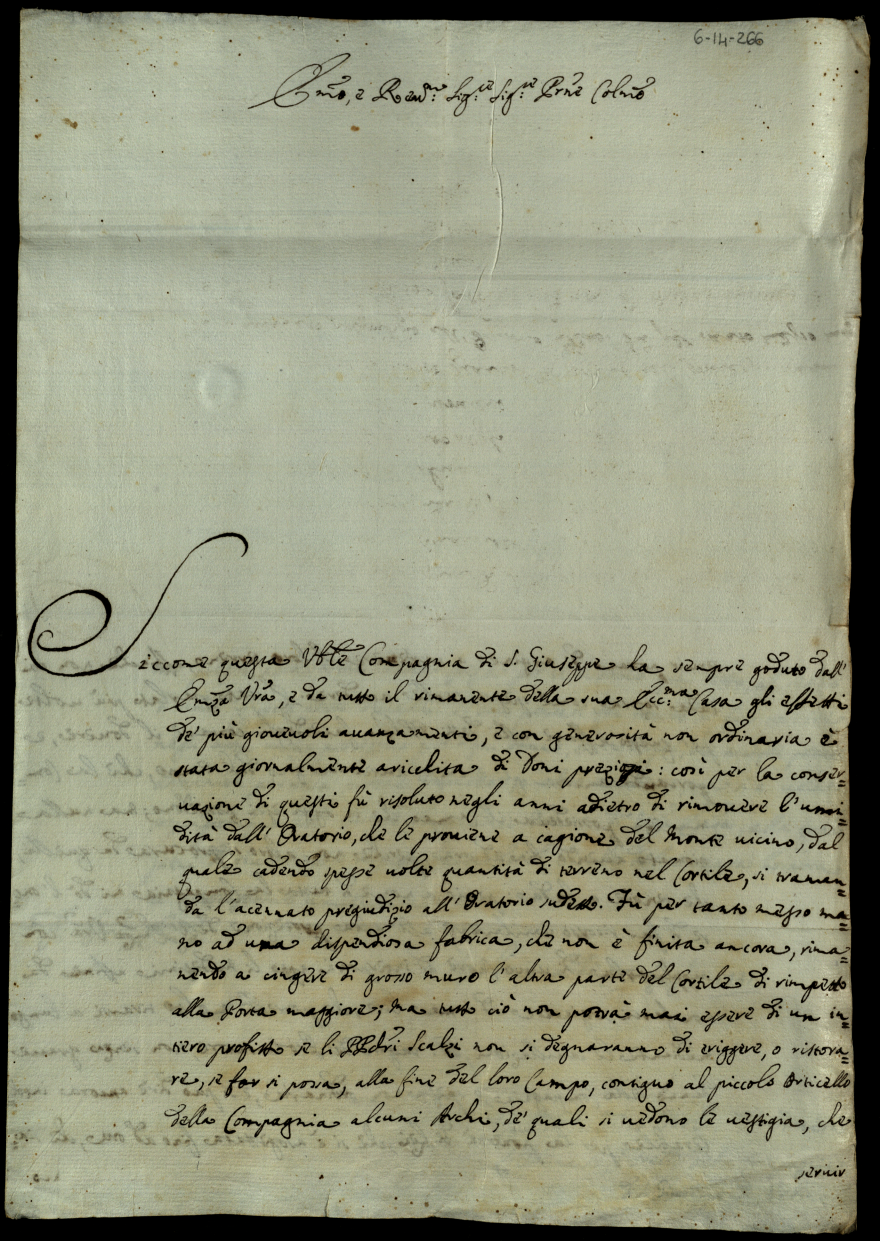 6-14-266
Emo, e Revdmo: Sigre: Sigre: Prne Colmo
Siccome questa Vble Compagnia di S. Giuseppe ha sempre goduto dall'
Emza Vra, e da tutto il rimanente della sua Eccma: Casa gli effetti
de' più gioueuoli auanzamenti, e con generosità non ordinaria è
stata giornalmente aricchita di Doni preziosi: così per la conser=
uazione di questi fù risoluto negli anni adietro di rimouere l'umi=
dità dall' Oratorio, che le prouiene a cagione del Monte uicino, dal
quale cadendo spesse uolte quantità di terreno nel Cortile, si traman=
da l'acennato pregiudizio all' Oratorio sudetto. Fù per tanto messo ma=
no ad una dispendiosa fabrica, che non è finita ancora, rima=
nendo a cingere di grosso muro l'altra parte del Cortile di rimpetto
alla Porta maggiore; ma tutto ciò non potrà mai essere di un in=
tero profitto se li PPdri Scalzi non si degnaranno di eriggere, o ristora=
re, se far si possa, alla fine del loro Campo, contiguo al piccolo Orticello
della Compagnia alcuni Archi, de' quali si uedono le uestigia, che
seruir